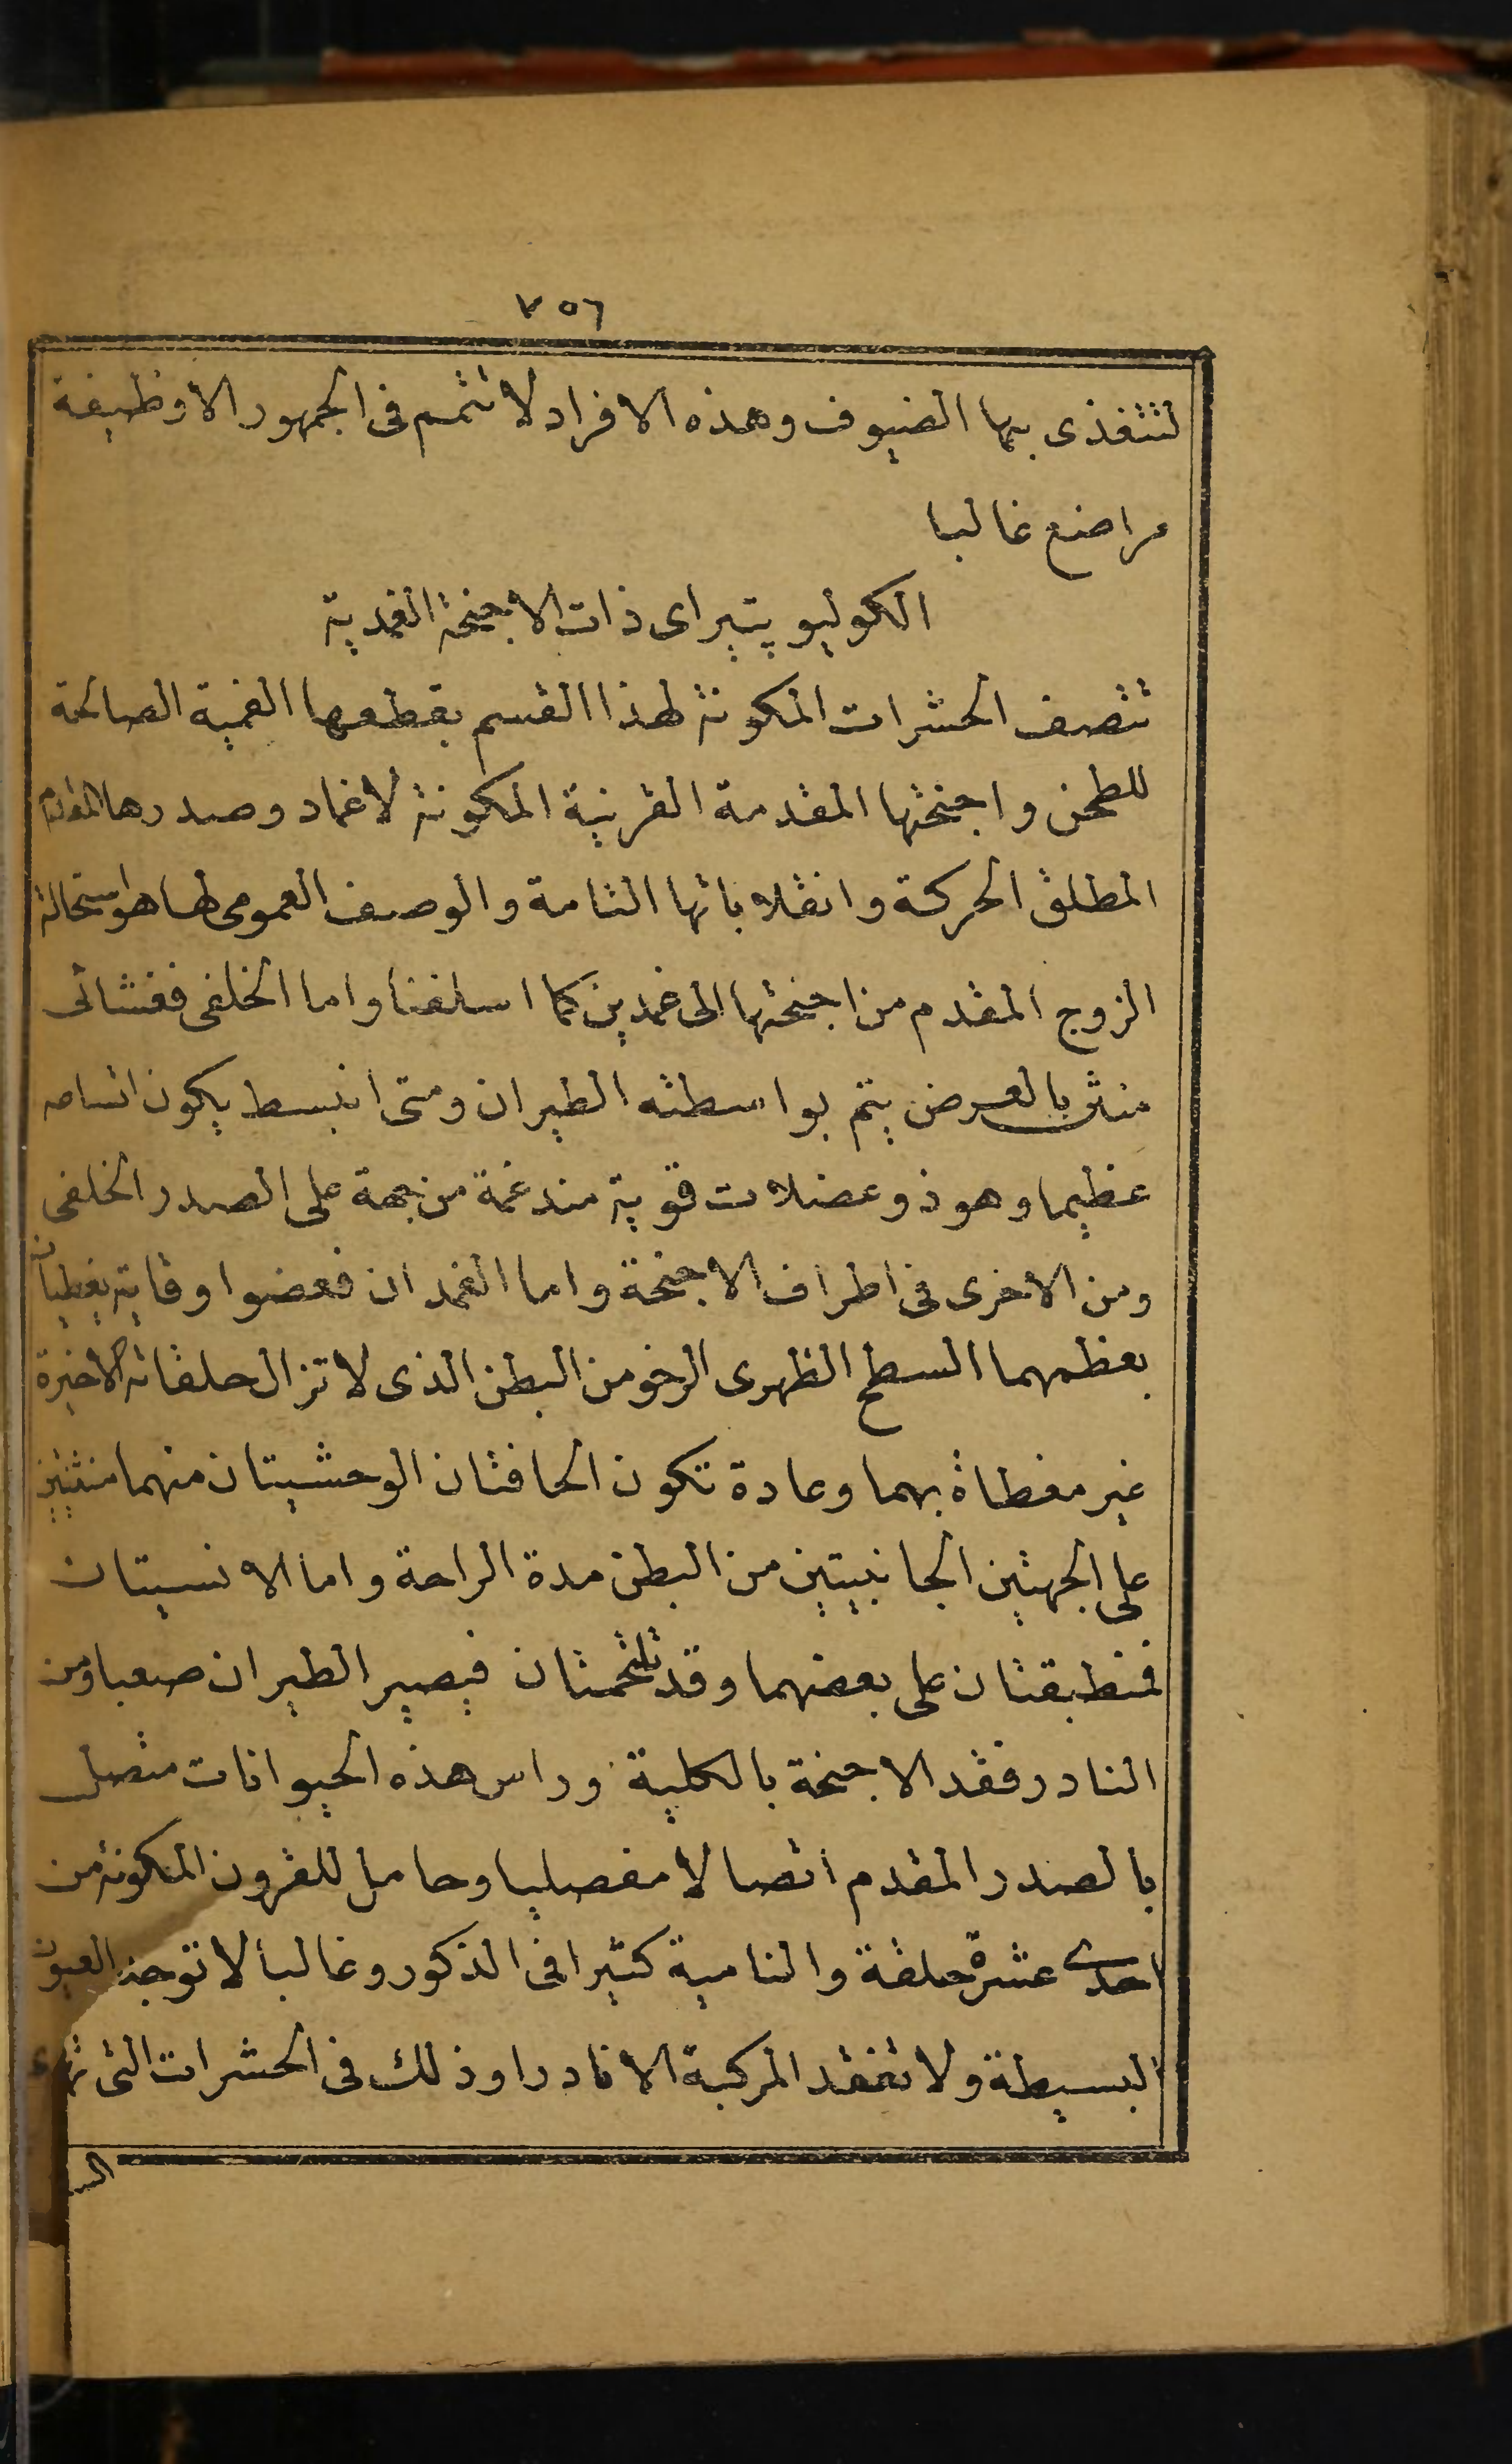 ٧٥٦
لتتغذى بها الضيوف وهذه الافراد لا تتمم فى الجمهور الا وظيفة
مراضع غالبا
الكوليوپتيرا اى ذات الاجنحة الغمدية
تتصف الحشرات المكونة لهذا القسم بقطعها الفمية الصالحة
للطحن واجنحتها المقدمة القرنية المكونة لاغماد وصدرها المقدم
المطلق الحركة وانقلاباتها التامة والوصف العمومى لها هو استحالة
الزوج المقدم من اجنحتها الى غمدين كما اسلفنا واما الخلفى فغشائى
منثن بالعرض يتم بواسطته الطيران ومتى انبسط يكون اتساعه
عظيما وهو ذو عضلات قوية مندغمة من جهة على الصدر الخلفى
ومن الاخرى فى اطراف الاجنحة واما الغمدان فعضوا وقاية يغطيان
بعظمهما السطح الظهرى الرخو من البطن الذى لا تزال حلقاته الاخيرة
غير مغطاة بهما وعادة تكون الحافتان الوحشيتان منهما منثنيتين
على الجهتين الجانبيتين من البطن مدة الراحة واما الانسيتان
فمنطبقتان على بعضهما وقد تلتحمتان فيصير الطيران صعبا ومن
النادر فقد الاجنحة بالكلية وراس هذه الحيوانات متصل
بالصدر المقدم اتصالا مفصليا وحامل للقرون المتكونة من
احدى عشرة حلقة والنامية كثيرا فى الذكور وغالبا لا توجد العيون
البسيطة ولا تفقد المركبة الا نادرا وذلك فى الحشرات التى